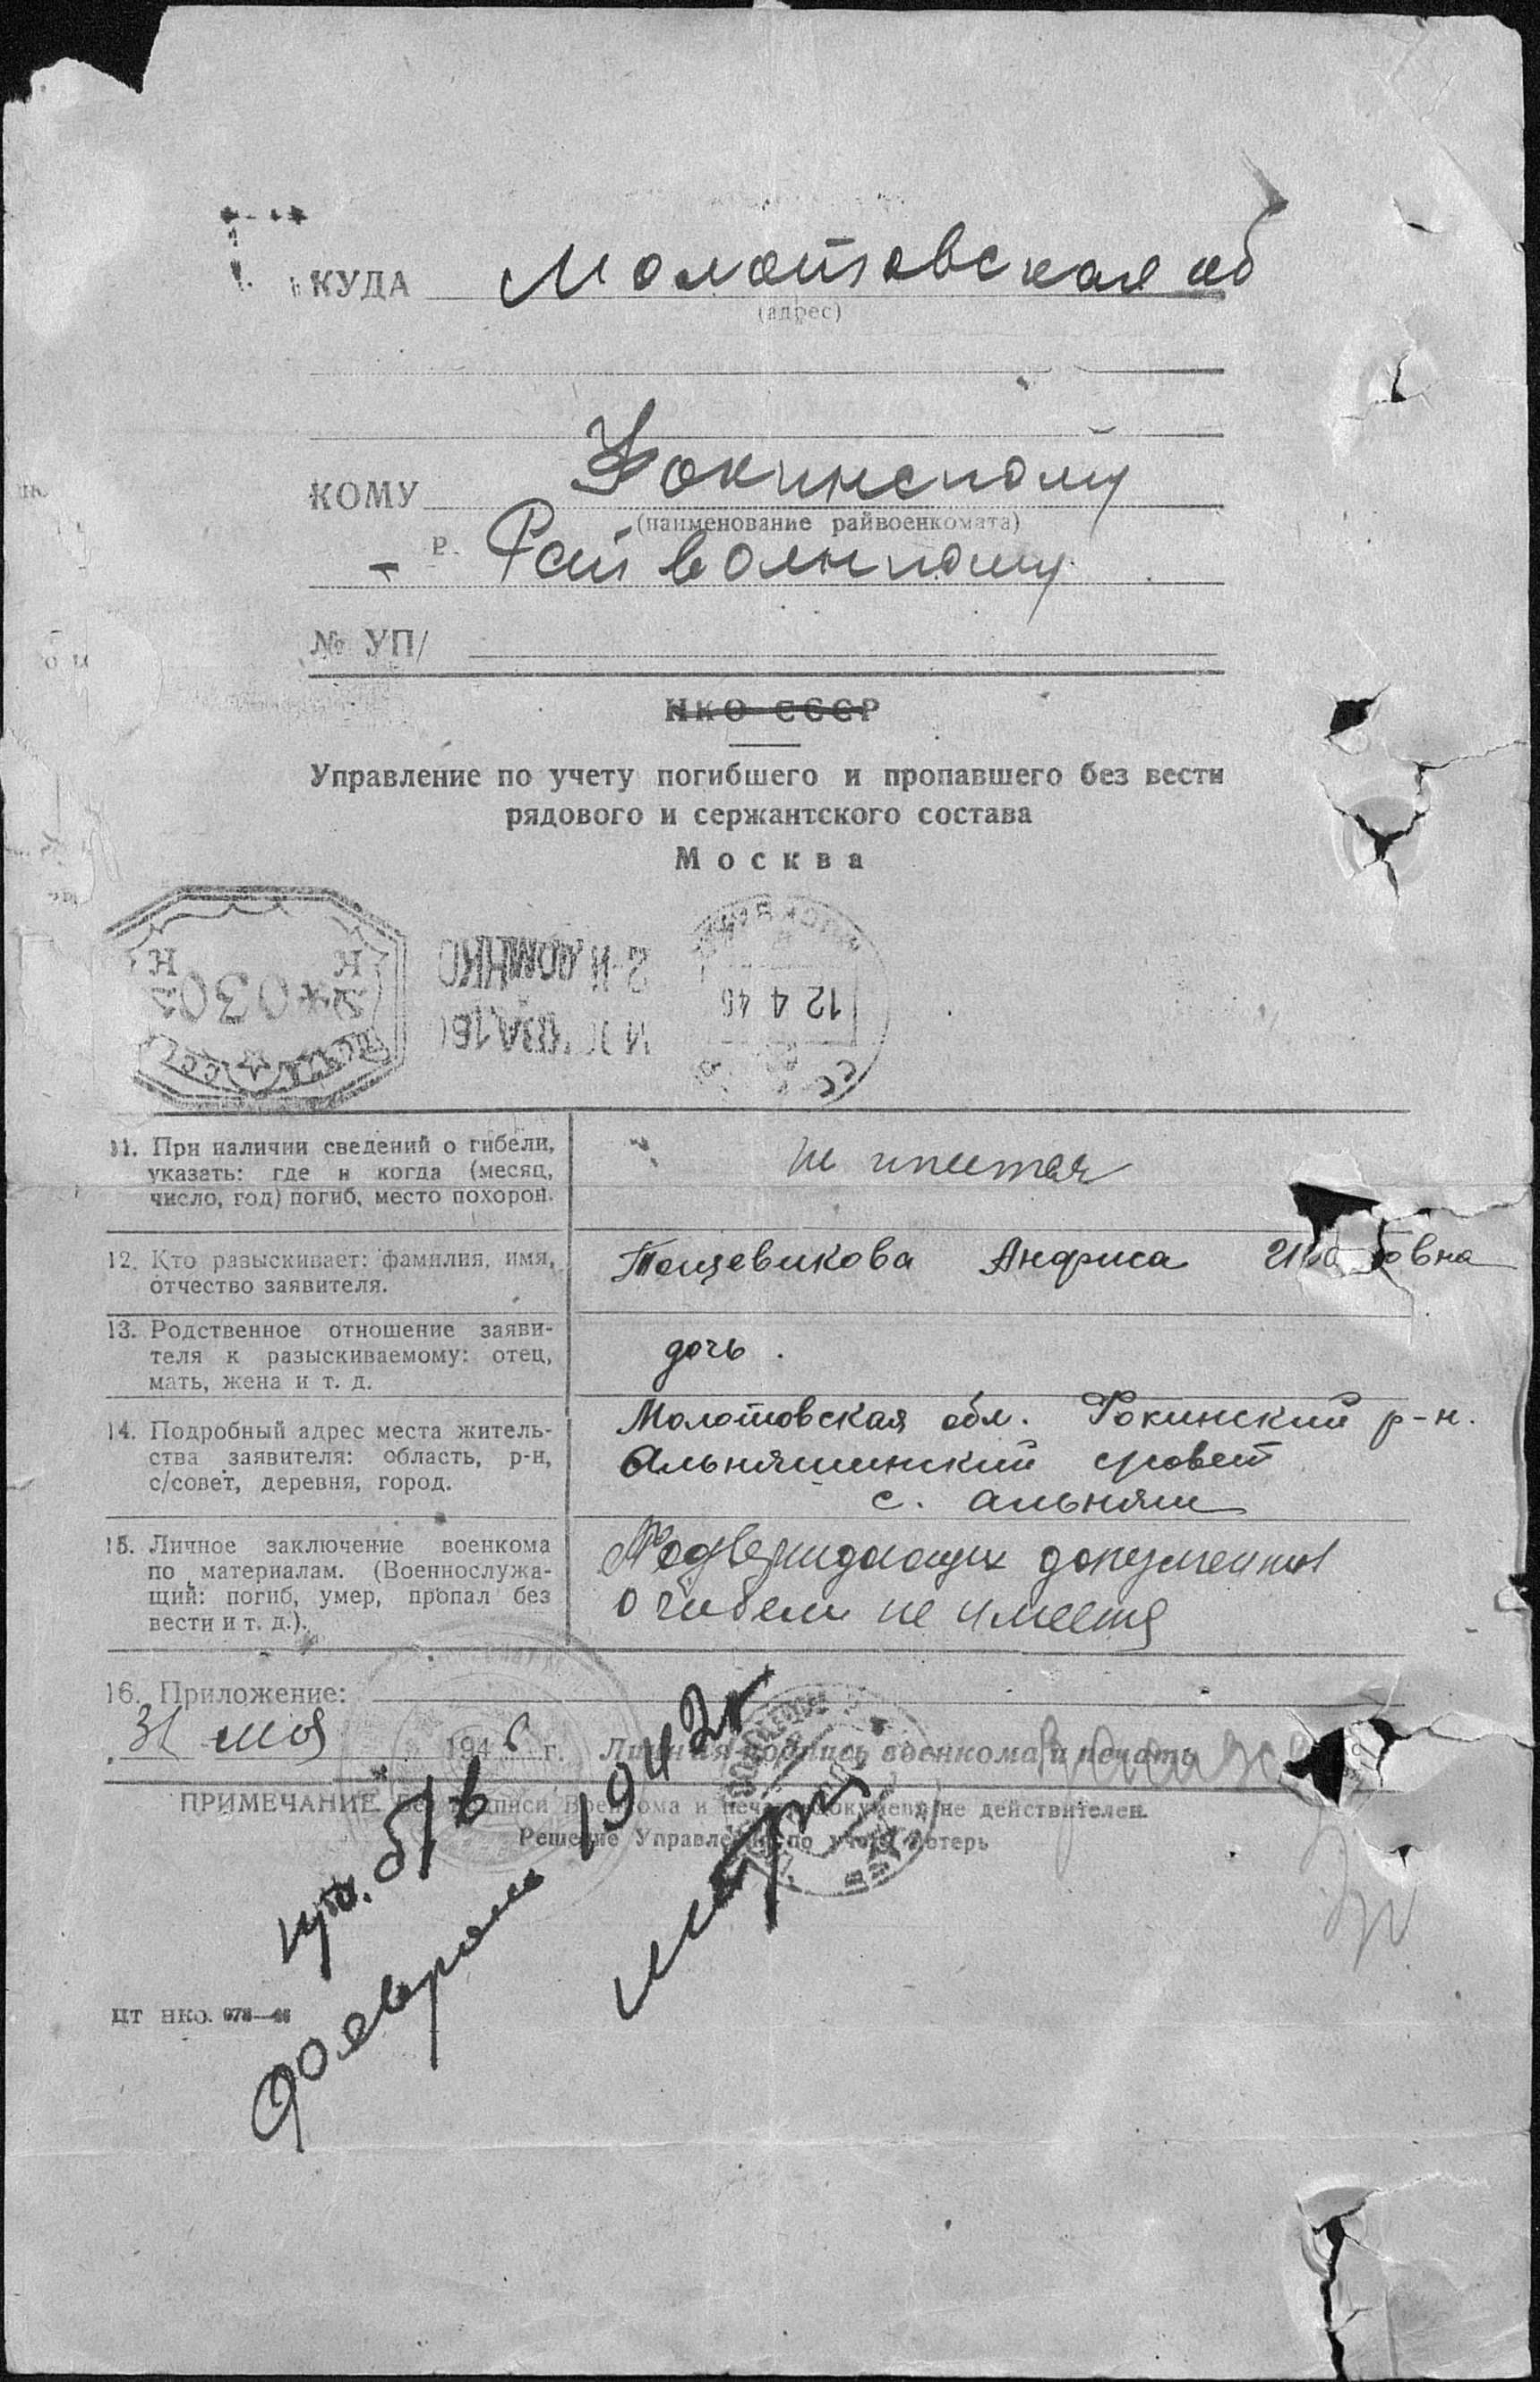 КУДА Молотовская об
(адрес)
КОМУ Фокинскому
(наименование райвоенкомата)
Райвоенкому
№ УП/
НКО СССР
Управление по учету погибшего и пропавшего без вести
рядового и сержантского состава
Москва
12 4 46
11. При наличии сведений о гибели,
указать: где и когда (месяц,
число, год) погиб, место похорон.
не имеется
12. Кто разыскивает: фамилия, имя,
отчество заявителя.
Анфиса
13. Родственное отношение заяви-
теля к разыскиваемому: отец,
мать, жена и т. д.
дочь.
14. Подробный адрес места житель-
ства заявителя: область, р-н,
с/совет, деревня, город.
Молотовская обл. Фокинский р-н.
Альняшинский с/совет
с. Альняш
15. Личное заключение военкома
по материалам. (Военнослужа-
щий: погиб, умер, пропал без
вести и т. д.).
Подтверждающих документов
о гибели не имеется
16. Приложение:
31 мая 1946 г. Личная подпись военкома и печать
ПРИМЕЧАНИЕ. Без подписи военкома и печати документ не действителен.
Решение Управления по учету потерь
пр. б/в
февраль 1942г
март
ЦТ НКО. 078—46